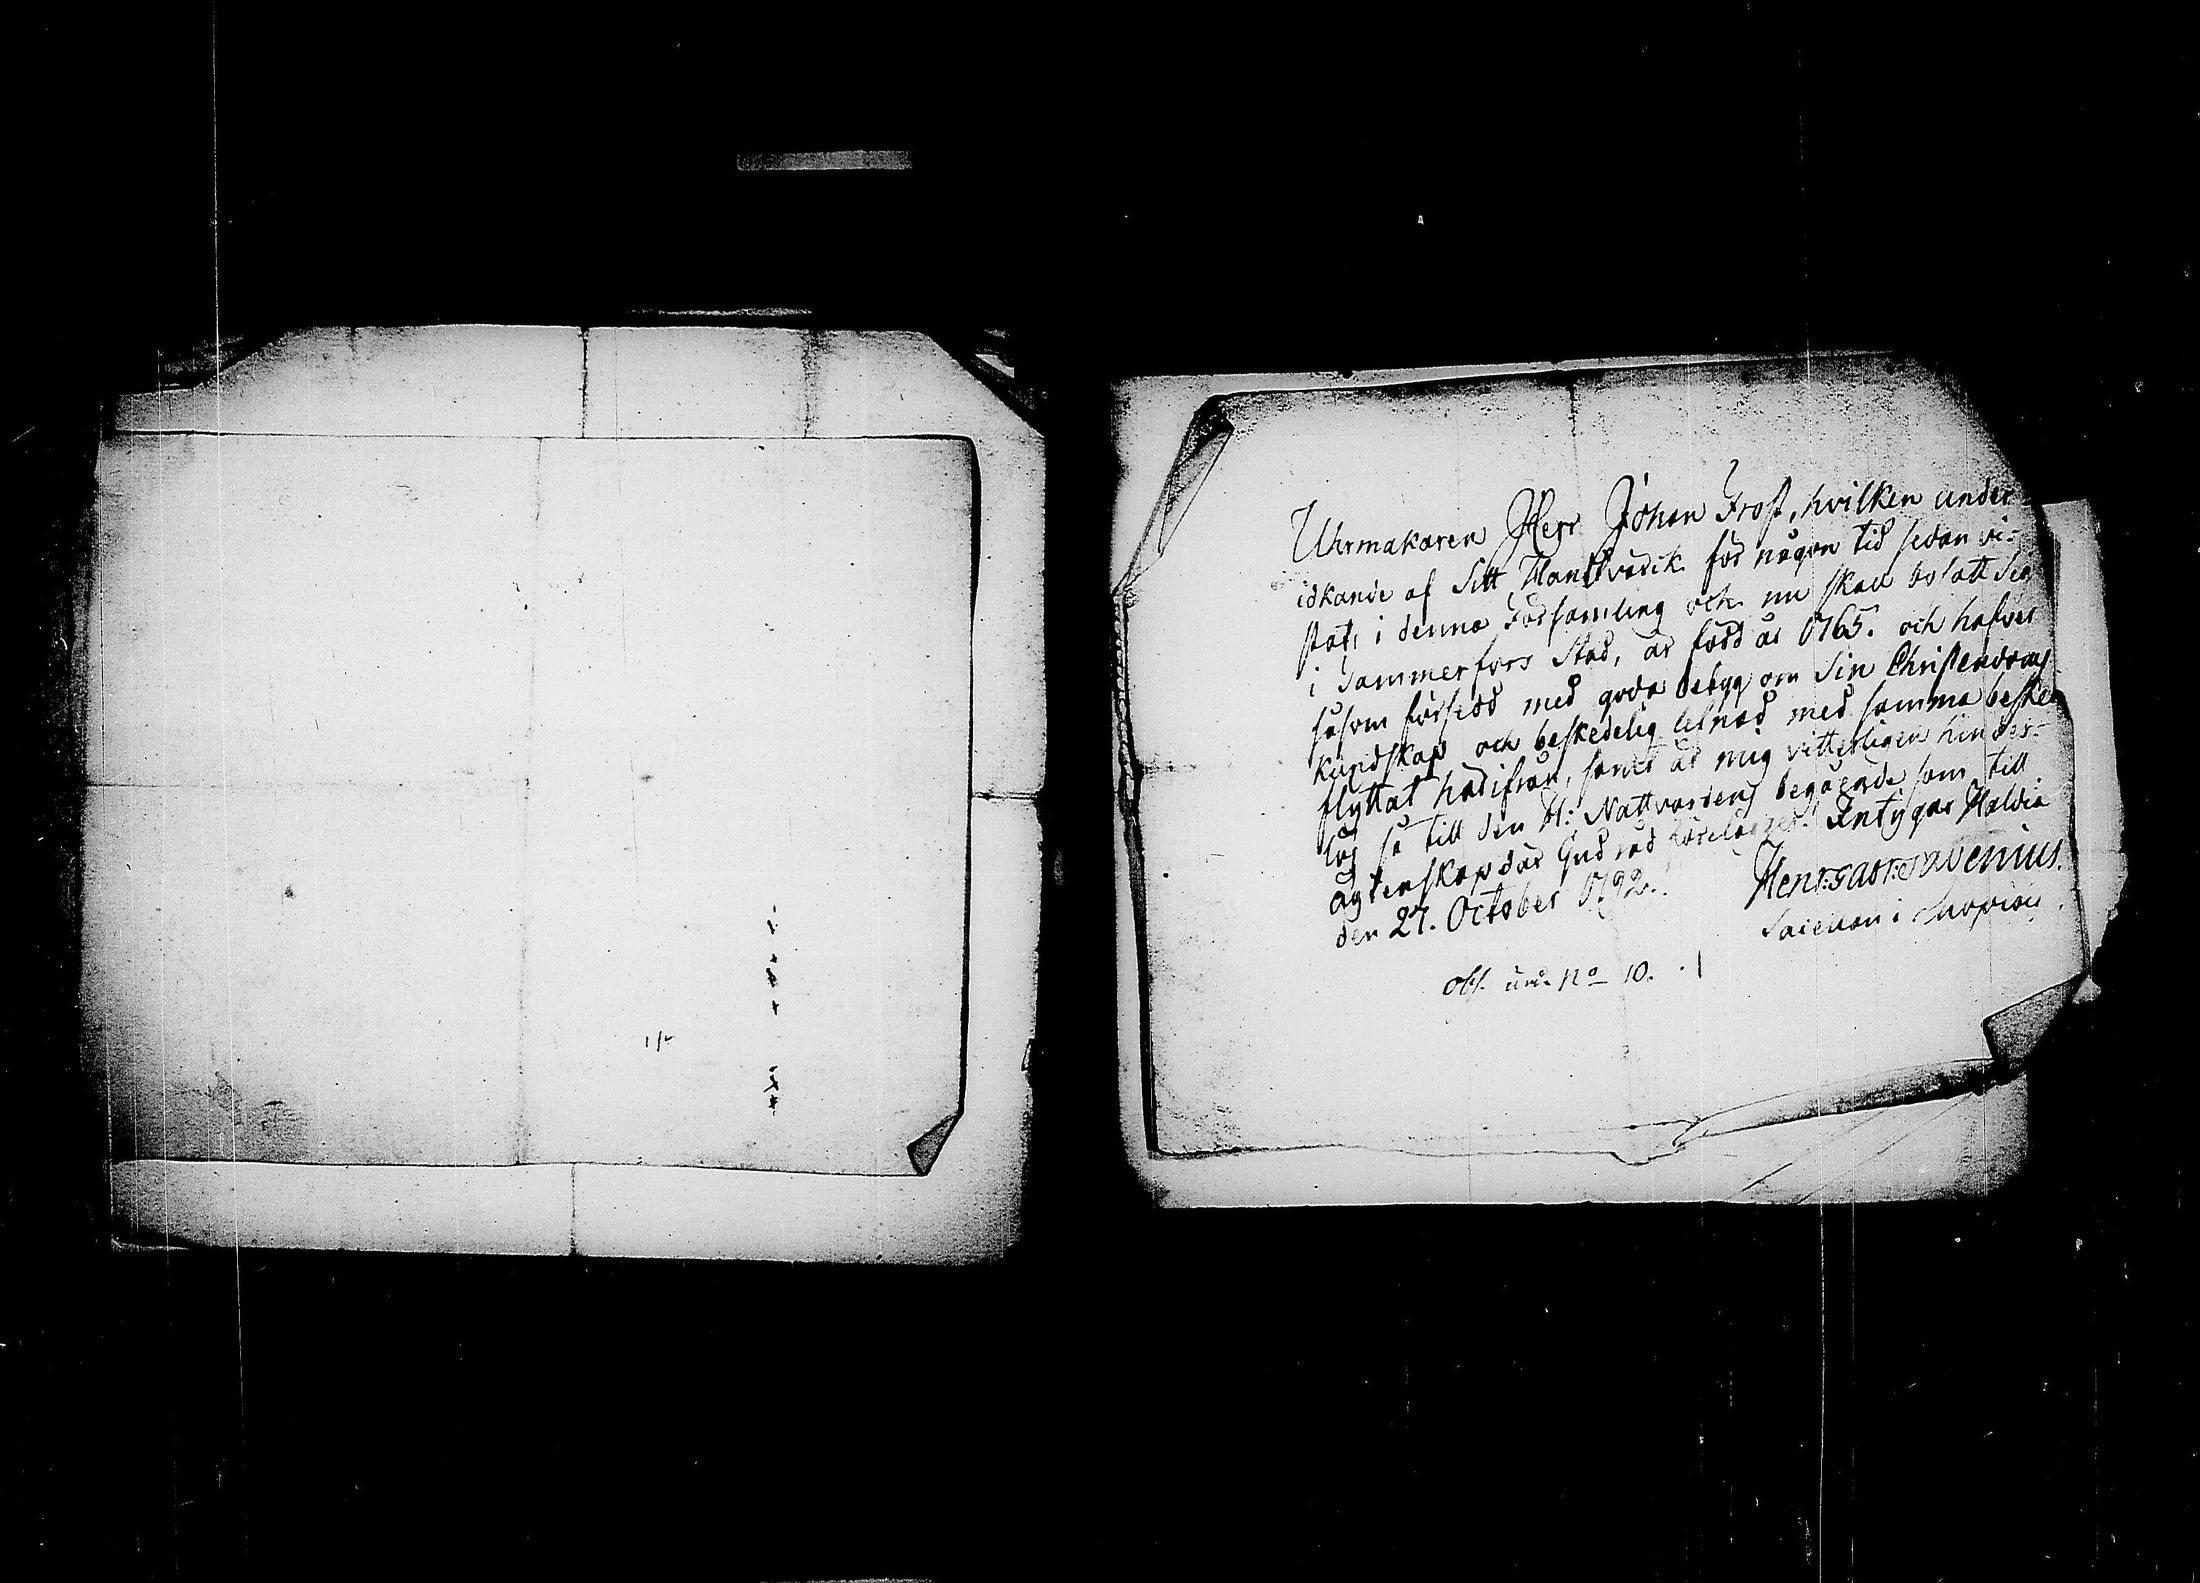 Uhrmakaren Herr Johan Frost, hvilken under
idkande af Sitt Handtvärck för någon tid sedan vi-
stats i denna Församling och nu skall bosatt Sig
i Tammerfors Stad, är född år 1765. och hafver
såsom försedd med goda betyg om Sin Christendoms
kundskap och beskedelig lefnad med samma beske
flyttat hädifrån, samt är mig vitterligen hinder-
lös så till den H: Nattvardens begående som till
Ägtenskap där Gud råd förelägger. Intygar Haldia
den 27. October 1792.
Henr: Gabr:
Sacellan i
obs. und. No 10.